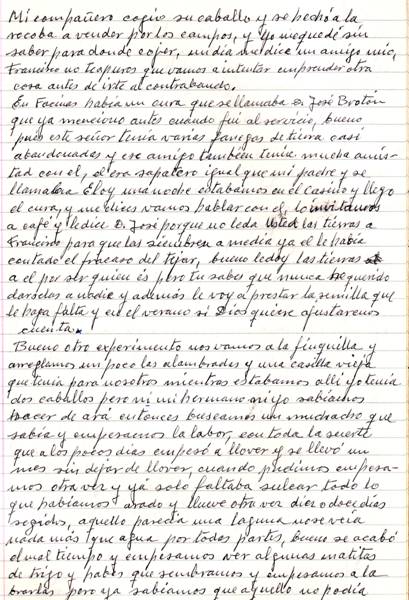 Mi compañero cogio su caballo y se hechó a la
recoba a vender por los campos, y yo me quedé sin
saber para donde cojer, un dia me dice un amigo mio,
Francisco no te apures que vamos a intentar emprender otra
cosa antes de irte al contrabando.
En Facinas habia un cura que se llamaba D. José Brotón
que ya mencioné antes cuando fui al servicio, bueno
pues este señor tenia varias fanegas de tierra casi
abandonadas y ese amigo tambien tenia mucha amis-
tad con el, el era zapatero igual que mi padre y se
llamaba Eloy una noche estabamos en el casino y llego
el cura y me dices vamos hablar con el, lo invitamos
a café y le dice D. José porque no le da Usted las tierras a
Francisco para que las siembren a media ya el le habia
contado el fracaso del tejar, bueno le doy las tierras
a el por ser quien es pero tu sabes que nunca he querido
darselas a nadie y además le voy a prestar la semilla que
le haga falta y en el verano si Dios quiere ajustaremos
cuenta.
Bueno otro experimento nos vamos a la finguilla y
arreglamos un poco las alambradas y una casilla vieja
que tenia para nosotros mientras estabamos alli yo tenia
dos caballos pero ni mi hermano ni yo sabiamos
hacer de ará entonces buscamos un muchacho que
sabia y empesamos la labor, con toda la suerte
que a los pocos dias empesó a llover y se llevó un
mes sin dejar de llover, cuando pudimos empesa-
mos otra vez y yá solo faltaba sulcar todo lo
que habiamos arado y llueve otra vez diez o doce dias
segidos, aquello parecia una laguna no se veia
nada más que agua por todas partes, bueno se acabó
el mal tiempo y empesamos ver algunas matitas
de trigo y habas que sembramos y empesamos a la
brarlas pero ya sabiamos que aquello no podia